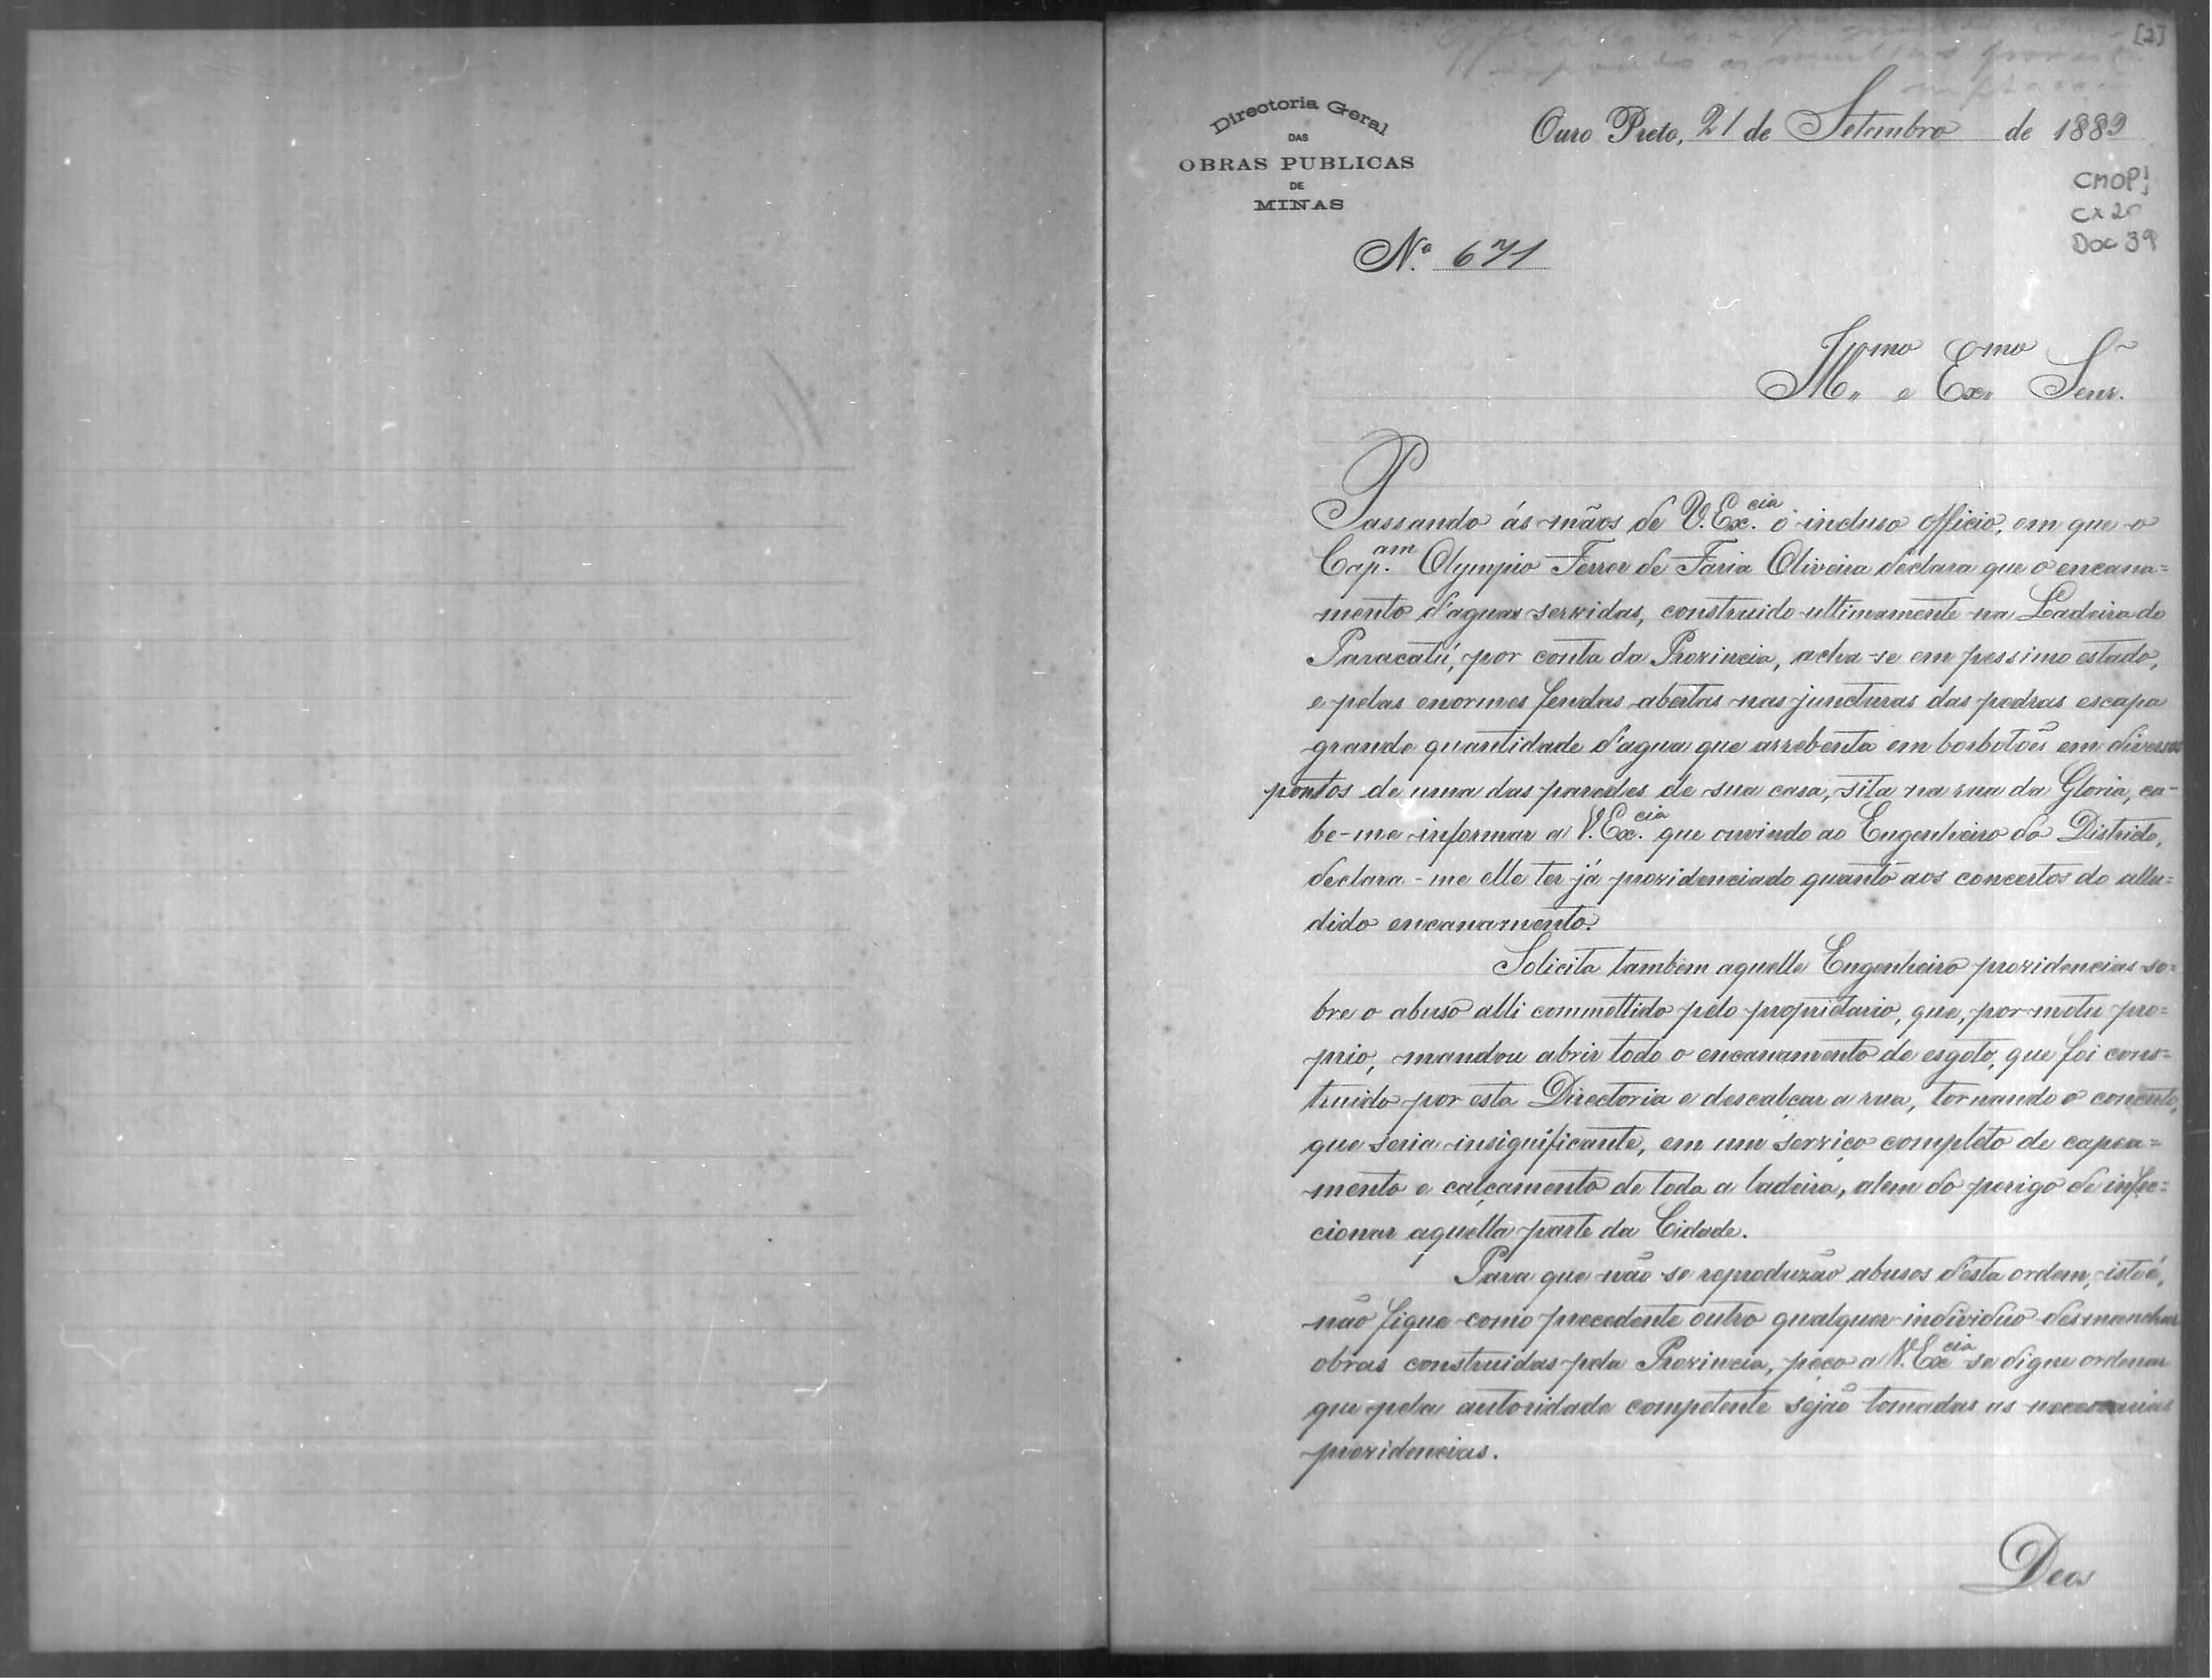 [2]
Directoria Geral
DAS
OBRAS PUBLICAS
DE
MINAS
Ouro Preto, 21 de Setembro de 1889
CMOP
Cx 20
Doc 39
Nº 671
Illmo e Exmo Senr.
Passando ás mãos de V. Ex.cia o incluso officio, em que o
Cap.am Olympio Ferrer de Faria Oliveira declara que o encana=
mento d'aguas servidas, construido ultimamente na Ladeira do
Paracatú, por conta da Provincia, acha-se em pessimo estado,
e pelas enormes fendas abertas nas juncturas das pedras escapa
grande quantidade d'agua que arrebenta em borbotões em diversos
pontos de uma das paredes de sua casa, sita na rua da Gloria, ca-
be-me informar a V. Ex.cia que ouvindo ao Engenheiro do Districto,
declara-me elle ter já providenciado quanto aos concertos do allu=
dido encanamento.
Solicita tambem aquelle Engenheiro providencias so=
bre o abuso alli commettido pelo proprietario, que, por motu pro=
prio, mandou abrir todo o encanamento de esgoto, que foi cons=
truido por esta Directoria e descalçar a rua, tornando o concerto,
que seria insignificante, em um serviço completo de capea=
mento e calçamento de toda a ladeira, alem do perigo de infec=
cionar aquella parte da Cidade.
Para que não se reproduzão abusos d'esta ordem, isto é,
não fique como precedente outro qualquer individuo desmanchar
obras construidas pela Provincia, peço a V. Ex.cia se digne ordenar
que pela autoridade competente sejão tomadas as necessarias
providencias.
Deos